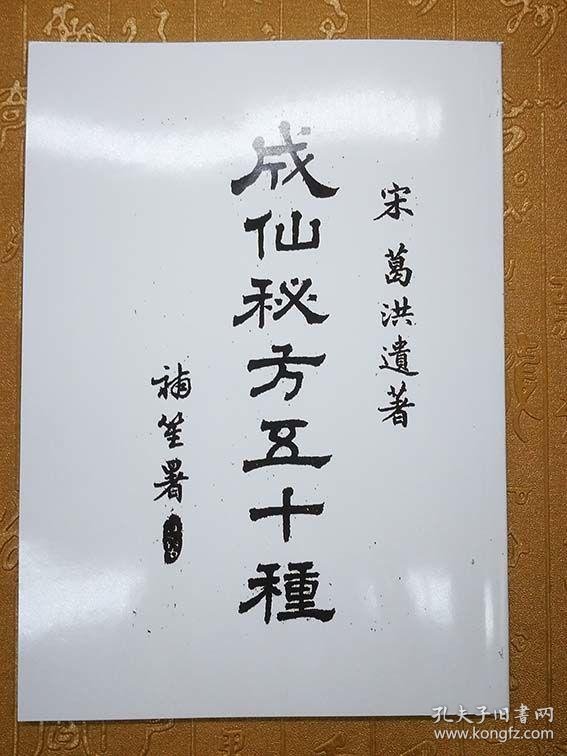 宋 葛洪遺著
成仙秘方五十種
補笙署
孔夫子旧書网
www.kongfz.com